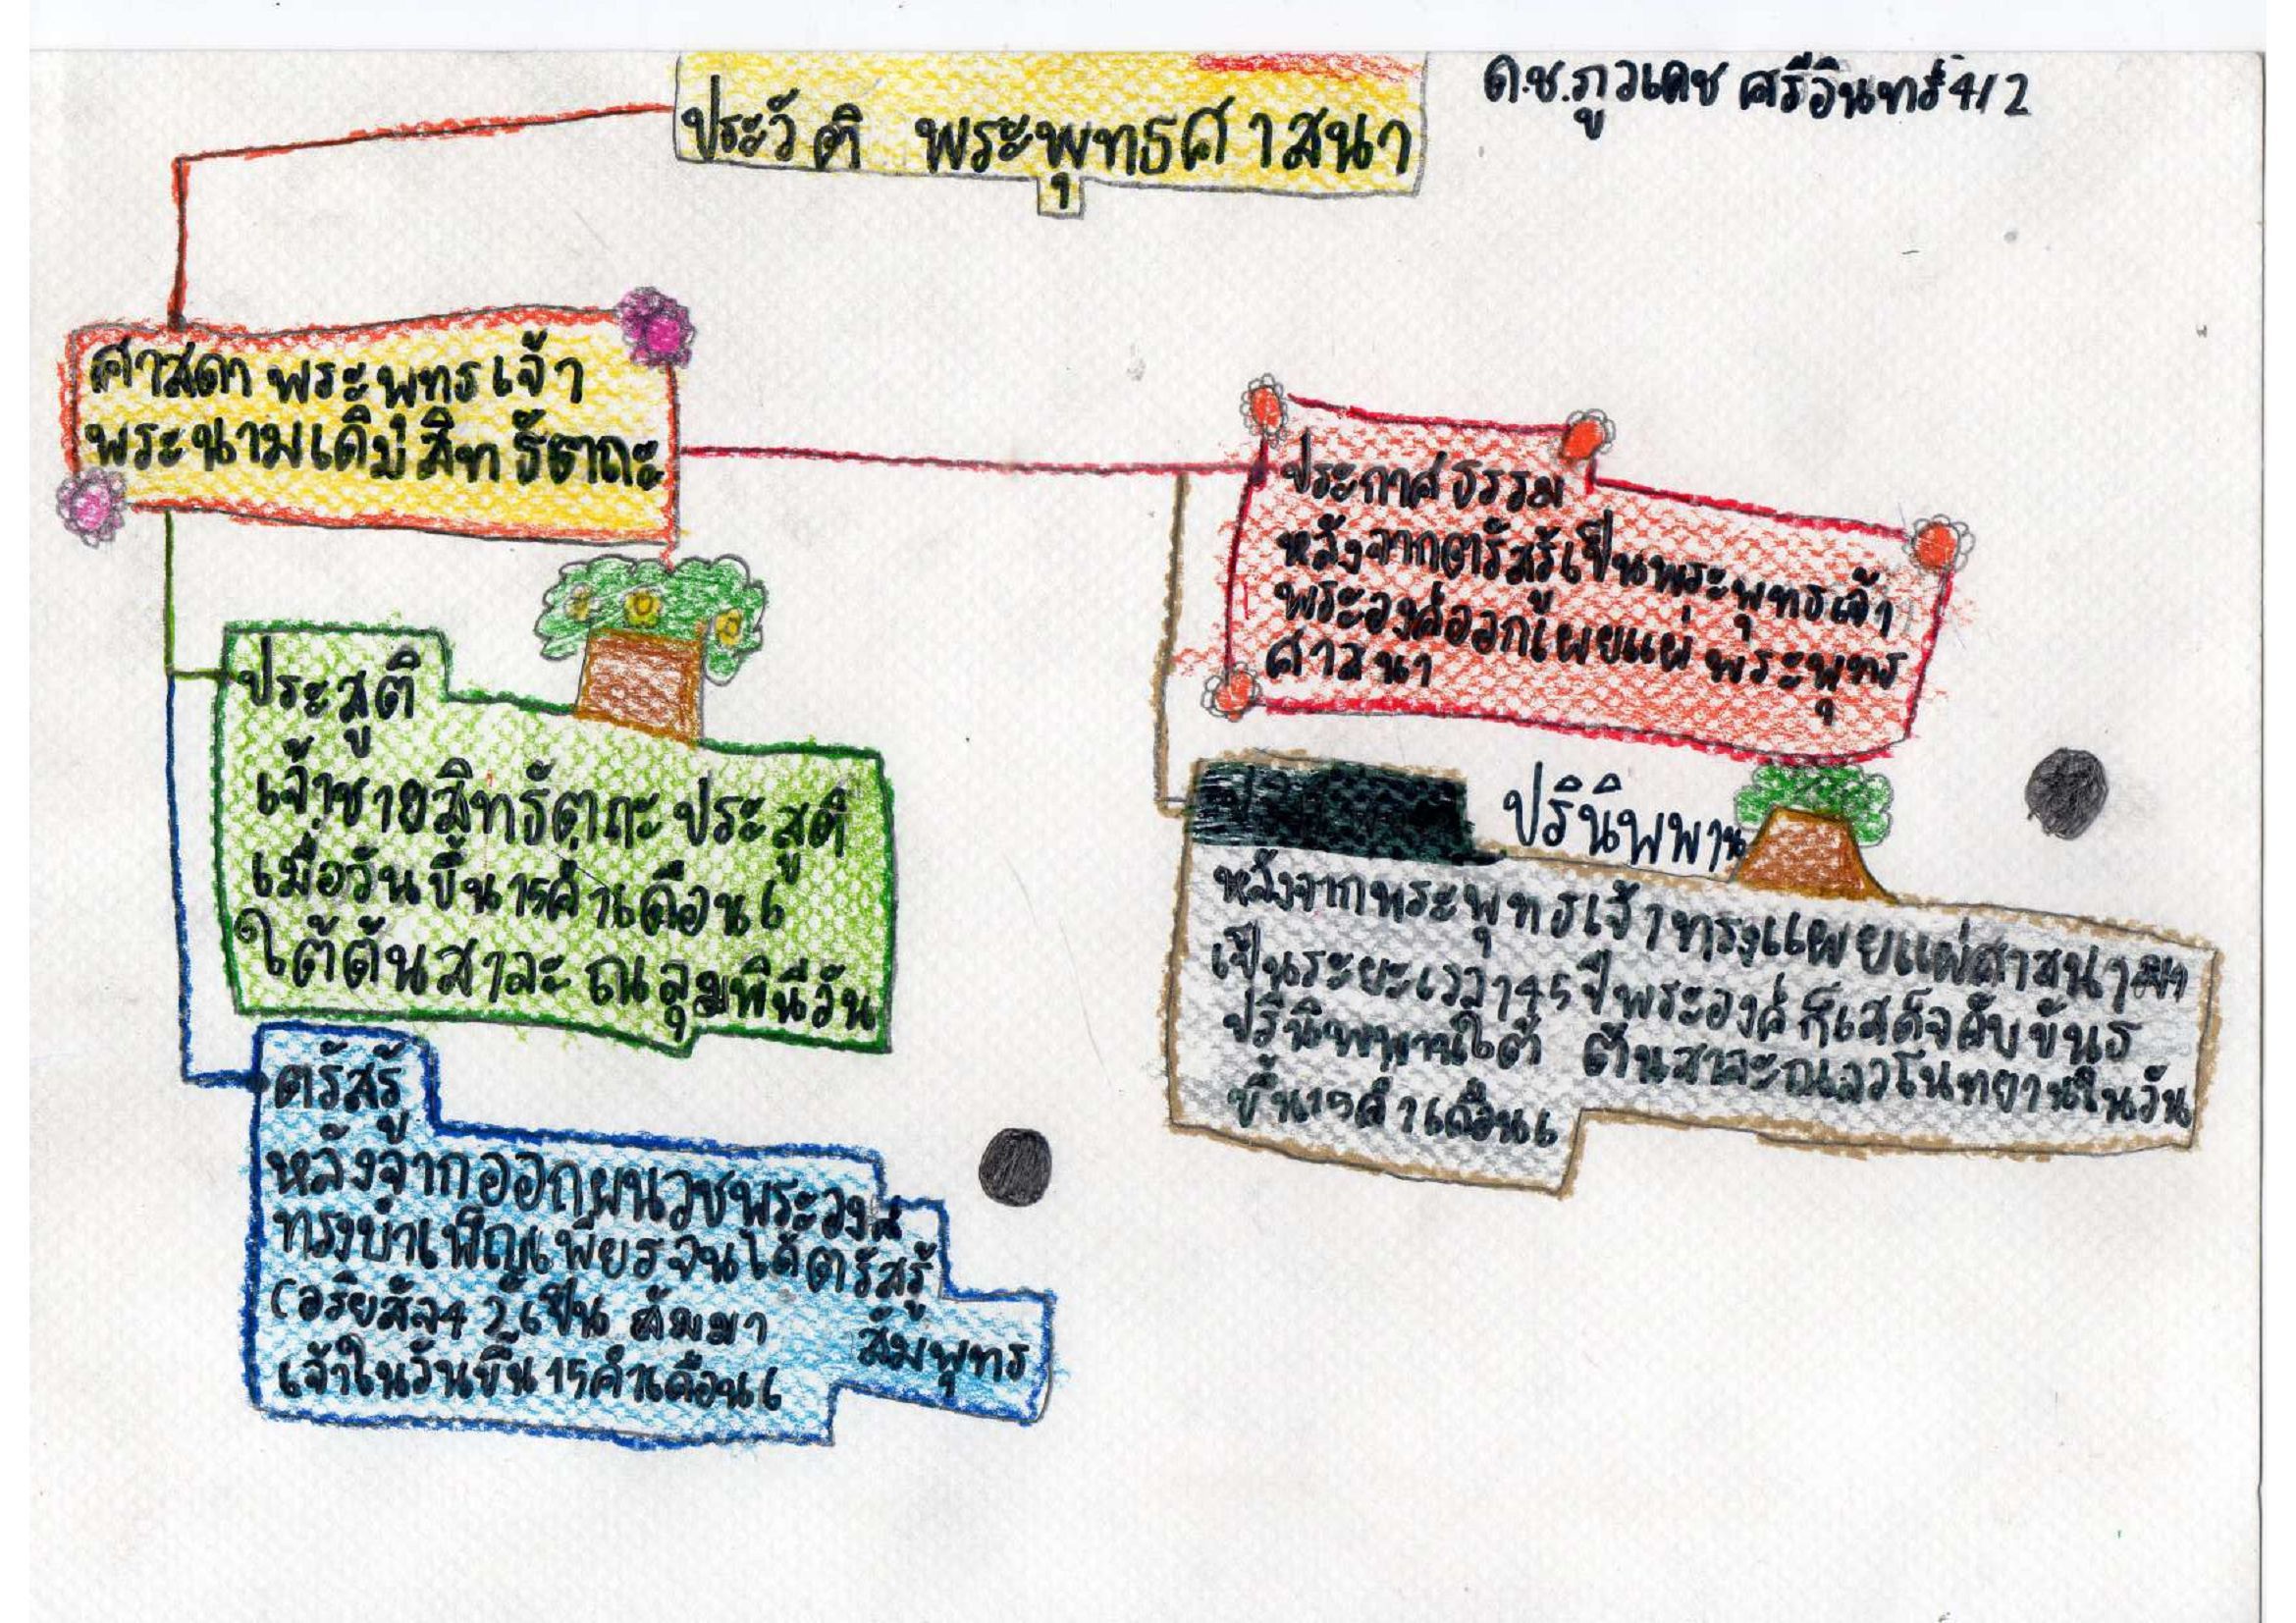 ประวัติ พระพุทธศาสนา
ด.ช.ภูวเดช ศรีอินทร์ 4/2
ศาสดา พระพทธเจ้า
พระนามเดิม สิทธัตถะ
ประสูติ
เจ้าชายสิทธัตถะ ประสูติ
เมื่อวันขึ้น 15 ค่ำเดือน 6
ใต้ต้นสาละ ณ ลุมพินีวัน
ตรัสรู้
หลังจากออกผนวชพระองค์
ทรงบำเพ็ญเพียรจนได้ตรัสรู้
(อริยสัจ 4 ) เป็น สัมมา สัมพุทธ
เจ้าในวันขึ้น 15 ค่ำเดือน 6
ประกาศธรรม
หลังจากตรัสรู้เป็นพระพุทธเจ้า
พระองค์ออกเผยแผ่ พระพุทธ
ศาสนา
ปรินิพพาน
หลังจากพระพุทธเจ้าทรงแผยแผ่ศาสนามา
เป็นระยะเวลา 45 ปีพระองค์ก็เสด็จดับขันธ
ปรินิพพานใต้ ต้นสาละณสวโนทยานในวัน
ขึ้น 15 ค่ำเดือน 6